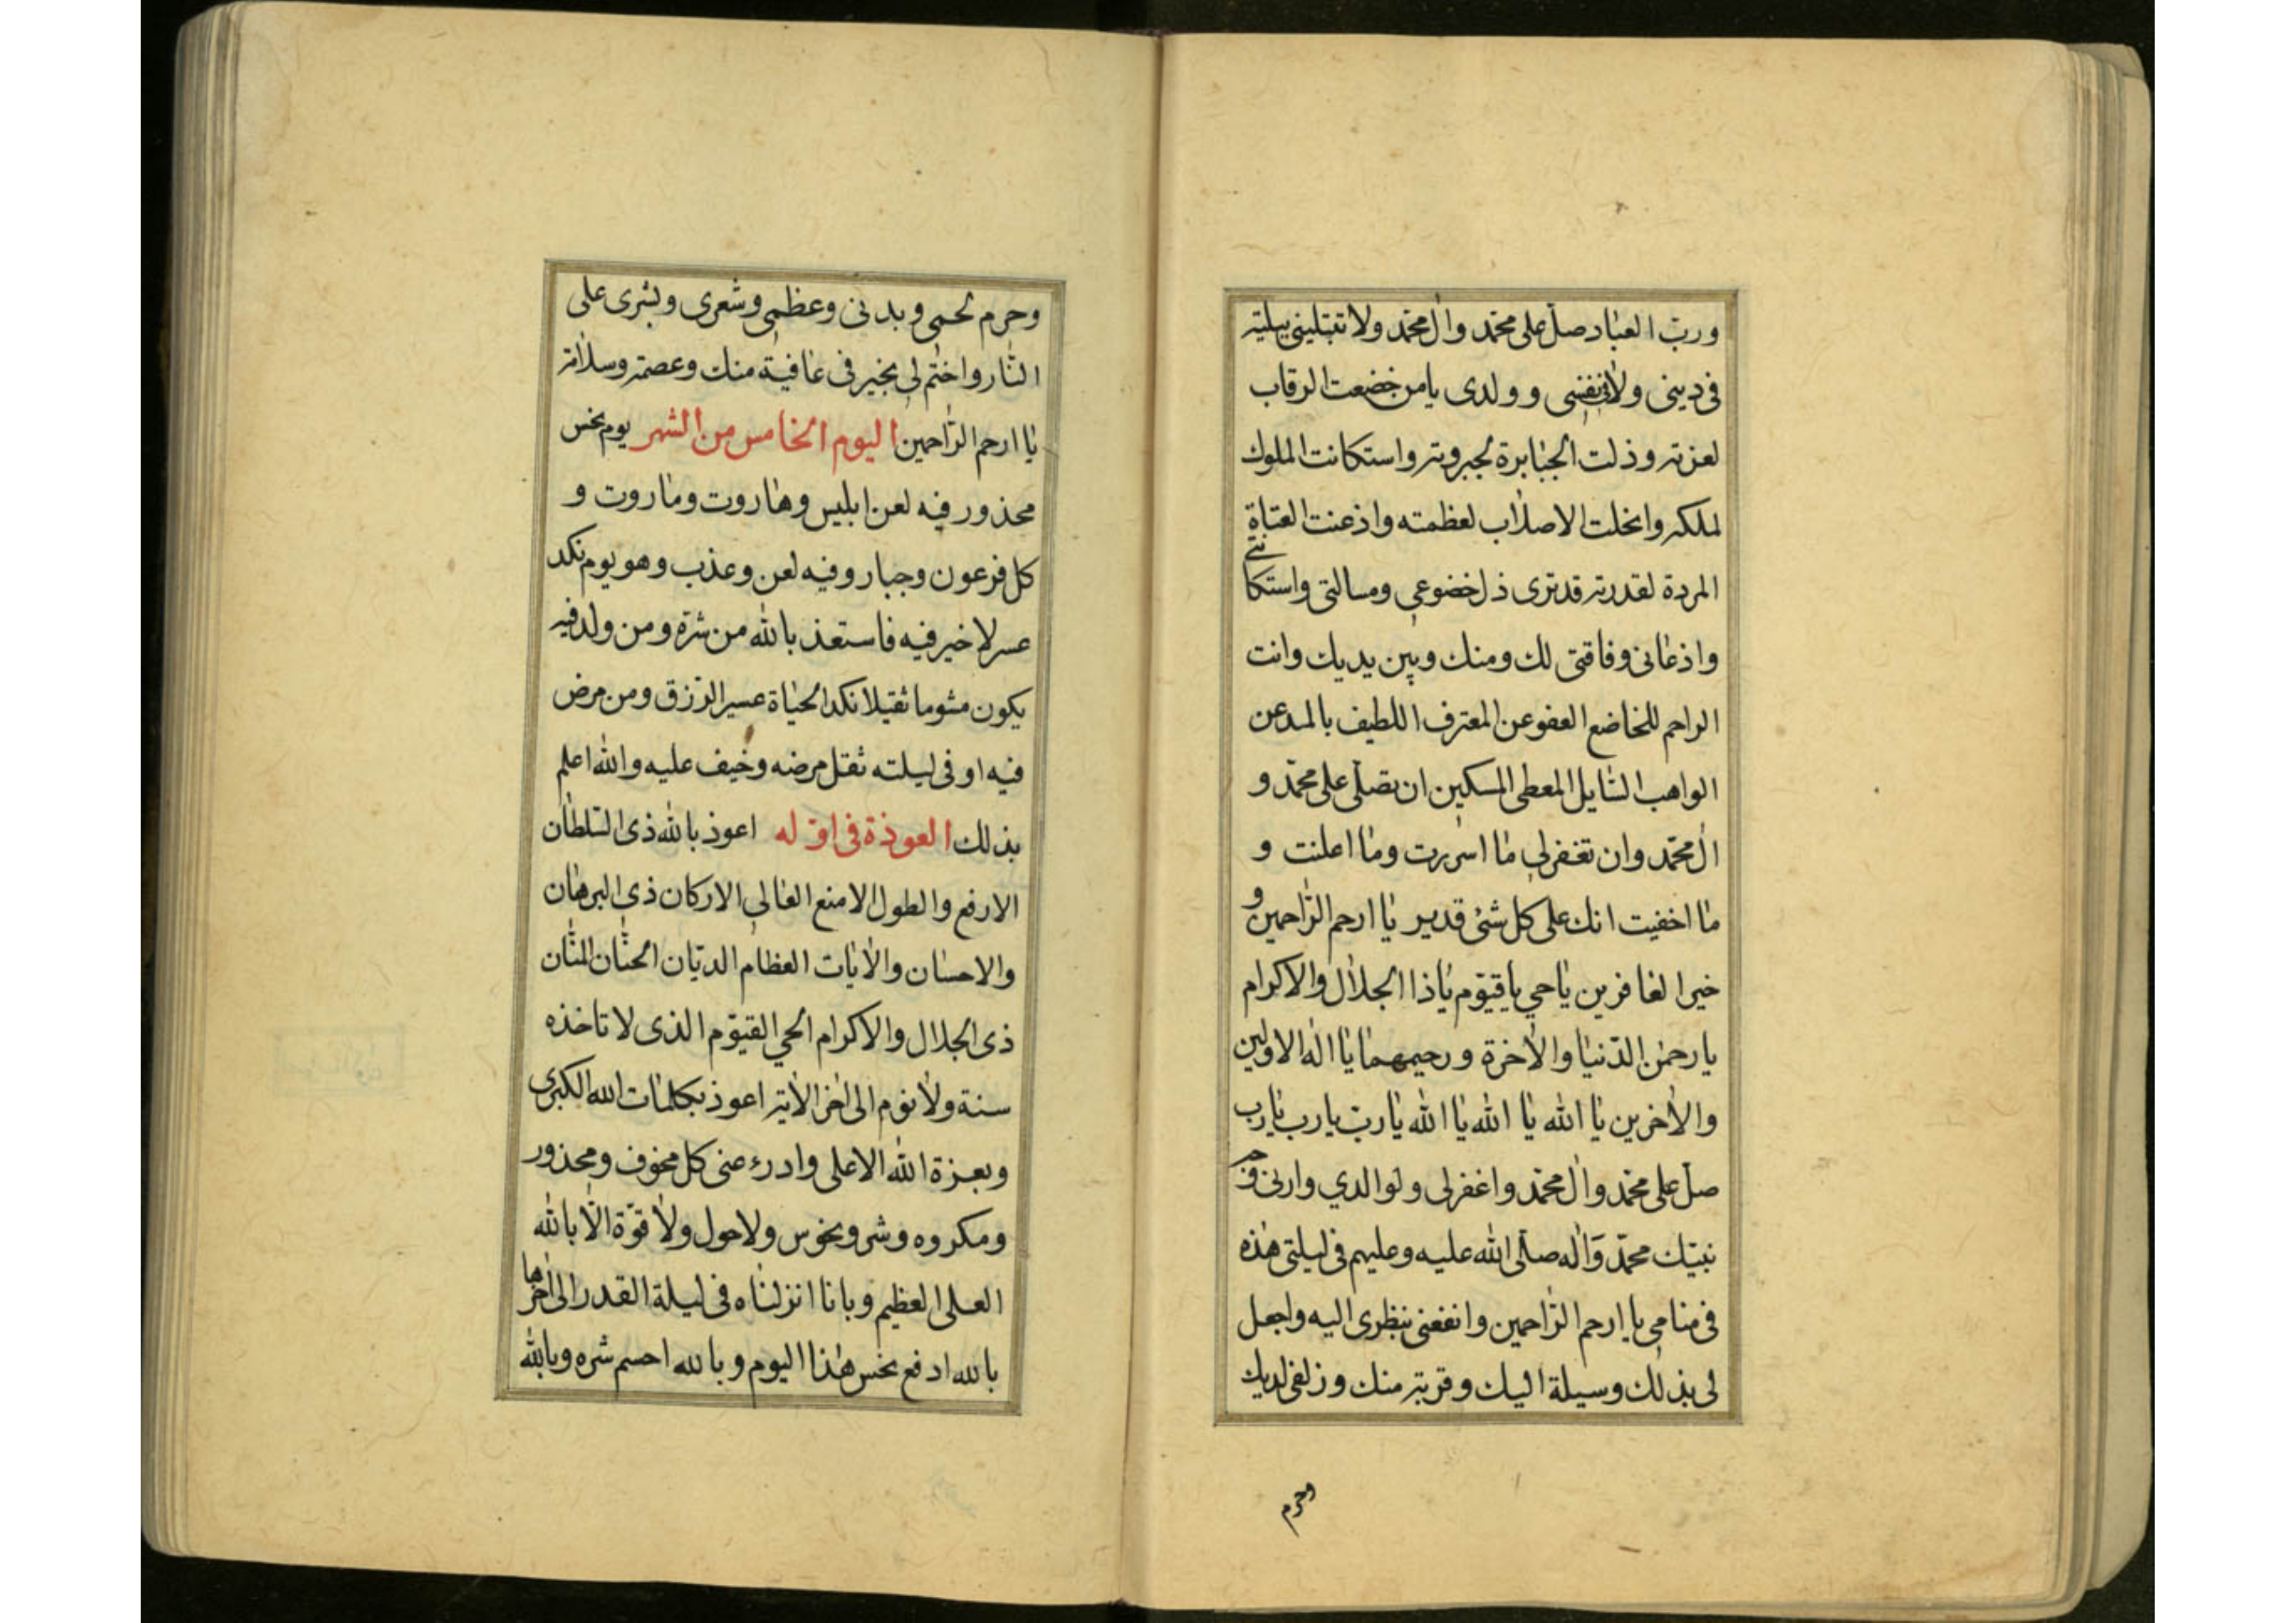 ورب العباد صل على محمد وال محمد ولا تبتليني ببلية
في ديني ولا في نفسي وولدي يا من خضعت الرقاب
لعزته وذلت الجبابرة لجبروته واستكانت الملوك
لملكه وانخلت الاصلاب لعظمته واذعنت العتاة
المردة لقدرته قد ترى ذل خضوعي ومسالتي واستكانتي
واذعاني وفاقتي لك ومنك وبين يديك وانت
الراحم للخاضع العفو عن المعترف اللطيف بالمدعن
الواهب السايل المعطى المسكين ان تصلي على محمد و
ال محمد وان تغفر لي ما اسررت وما اعلنت و
ما اخفيت انك على كل شئ قدير يا ارحم الراحمين و
خير الغافرين يا حي يا قيوم يا ذا الجلال والاكرام
يا رحمن الدنيا والاخرة ورحيمهما يا اله الاولين
والاخرين يا الله يا الله يا الله يا رب يا رب يا رب
صل على محمد وال محمد واغفر لى ولوالدي وارنى
نبيك محمد واله صلى الله عليه وعليهم في ليلتي هذه
في منامي يا ارحم الراحمين وانفعني بنظرى اليه واجعل
لى بذلك وسيلة اليك وقربة منك وزلفى لديك
وحرم
وحرم لحمي وبدني وعظمي وشعري وبشرى على
النار واختم لي بخير في عافية منك وعصمة وسلامة
يا ارحم الراحمين اليوم الخامس من الشهر يوم نحس
محذور فيه لعن ابليس وهاروت وماروت و
كل فرعون وجبار وفيه لعن وعذب وهو يوم نكد
عسر لا خير فيه فاستعذ بالله من شره ومن ولد فيه
يكون مشوما ثقيلا نكد الحياة عسير الرزق ومن مرض
فيه او في ليلته ثقل مرضه وخيف عليه والله اعلم
بذلك العوذة في اوّله اعوذ بالله ذي السلطان
الارفع والطول الامنع العالي الاركان ذي البرهان
والاحسان والايات العظام الديان الحنان المنان
ذي الجلال والاكرام الحي القيوم الذى لا تاخذه
سنة ولا نوم الى اخر الاية اعوذ بكلمات الله الكبرى
وبعزة الله الاعلى وادرء عنى كل مخوف ومحذور
ومكروه وشر ونحوس ولا حول ولا قوة الا بالله
العلى العظيم وبانا انزلناه في ليلة القدر الى اخرها
بالله ادفع نحس هذا اليوم وبالله احسم شره وبالله